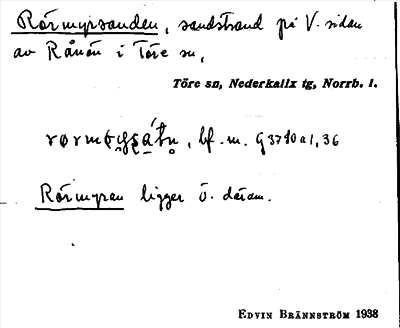 Rörmyrsanden, sandstrand på V. sidan
av Rånön i Töre sn,
Töre sn, Nederkalix tg, Norrb. l.
bf. m. G3740a1, 36
Rörmyran ligger ö. därom.
EDVIN BRÄNNSTRÖM 1938